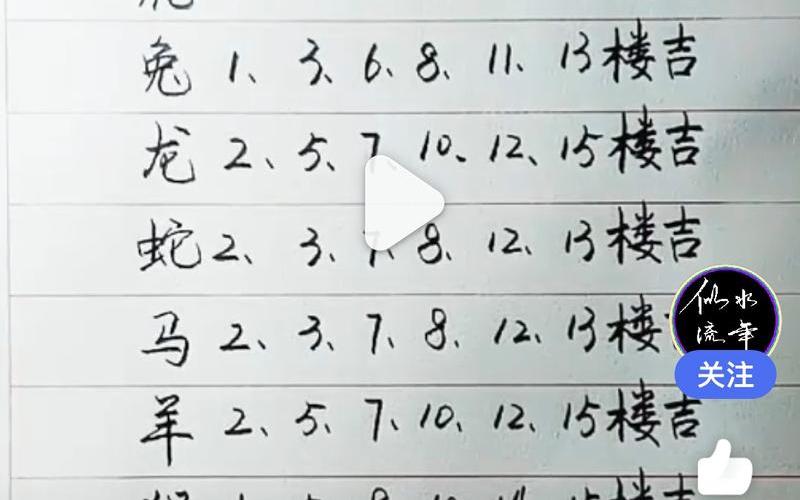 兔 1、3、6、8、11、13楼吉
龙 2、5、7、10、12、15楼吉
蛇 2、3、7、8、12、13楼吉
马 2、3、7、8、12、13楼
羊 2、5、7、10、12、15楼吉
似水
流年
关注